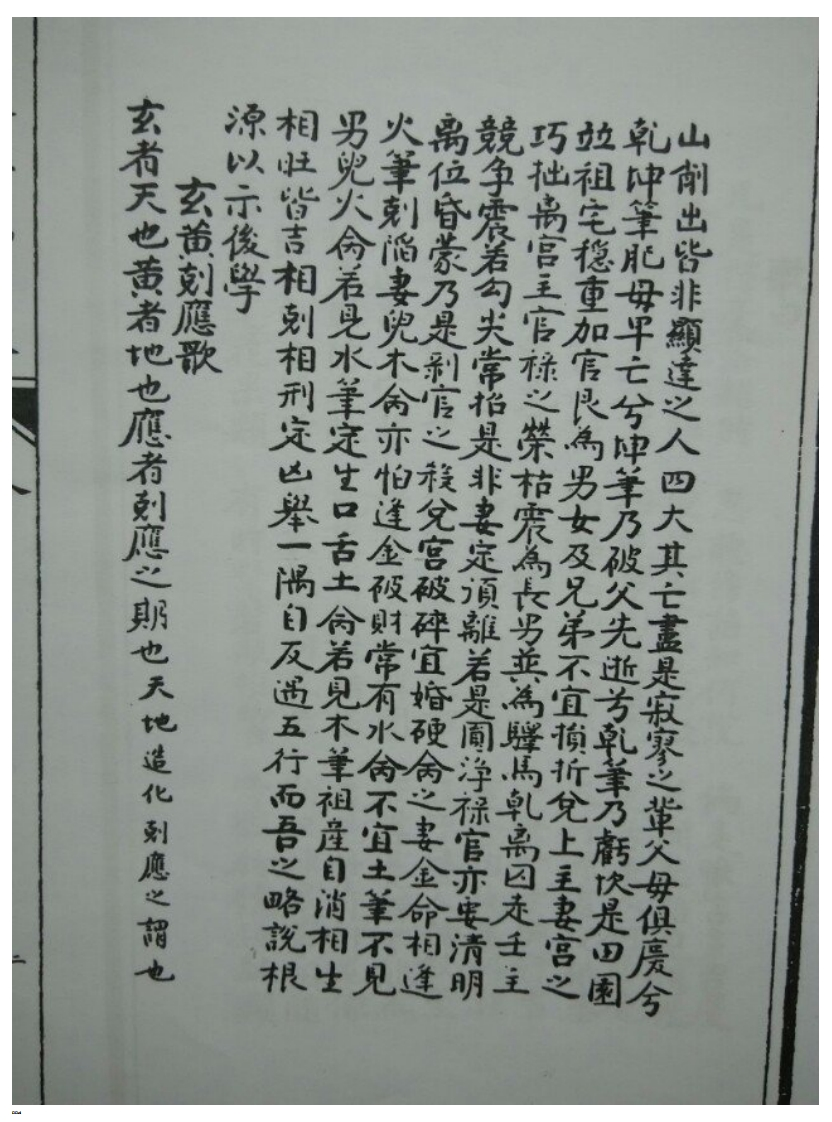 山削出皆非顯達之人四大其亡盡是寂寥之輩父母俱慶兮
乾坤筆肥母早亡兮坤筆乃破父先逝兮乾筆乃虧坎是田園
並祖宅穩重加官艮為男女及兄弟不宜損折兌上主妻宮之
巧拙离宮主官祿之榮枯震為長男並為驛馬乹离囚走壬主
競争震若勾尖常招是非妻定須離若是圓淨祿官亦安清明
离位昏蒙乃是剥官之殺兌宮破碎宜婚硬命之妻金命相逢
火筆尅陷妻兒木命亦怕逢金破財常有水命不宜土筆不見
男兒火命若見水筆定生口舌土命若見木筆祖產自消相生
相旺皆吉相尅相刑定凶舉一隅自反遇五行而吾之略說根
源以示後學
玄黄尅應歌
玄者天也黄者地也應者尅應之期也天地造化尅應之謂也